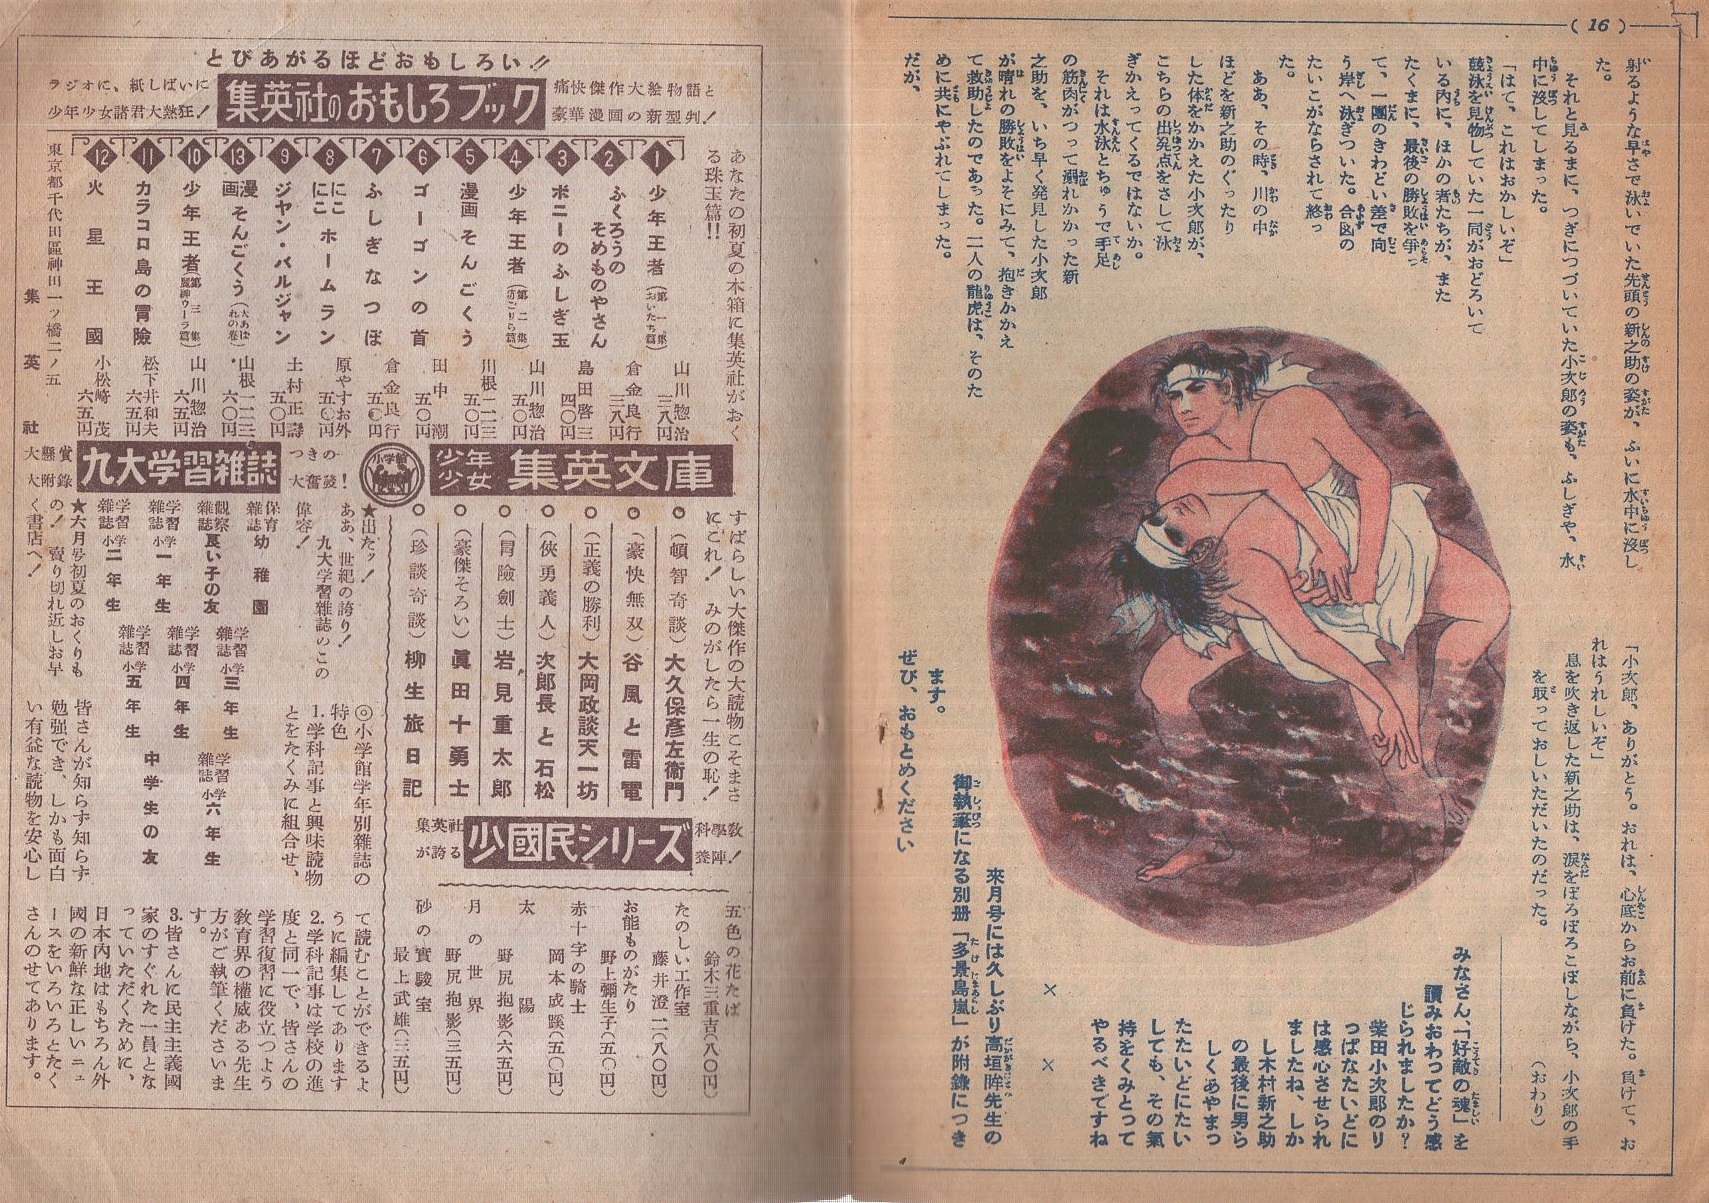 ( 16 )
射るような早さで泳いでいた先頭の新之助の姿が、ふいに水中に沒し
た。
それと見るまに、つぎにつづいていた小次郎の姿も、ふしぎや、水
中に沒してしまった。
「はて、これはおかしいぞ」
競泳を見物していた一同がおどろいて
いる内に、ほかの者たちが、また
たくまに、最後の勝敗を爭っ
て、一團のきわどい差で向
う岸へ泳ぎついた。合図の
たいこがならされて終っ
た。
ああ、その時、川の中
ほどを新之助のぐったり
した体をかかえた小次郎が、
こちらの出発点をさして泳
ぎかえってくるではないか。
それは水泳とちゅうで手足
の筋肉がつって溺れかかった新
之助を、いち早く発見した小次郎
が晴れの勝敗をよそにみて、抱きかかえ
て救助したのであった。二人の龍虎は、そのた
めに共にやぶれてしまった。
だが、
「小次郎、ありがとう。おれは、心底からお前に負けた。負けて、お
れはうれしいぞ」
息を吹き返した新之助は、涙をぽろぽろこぼしながら、小次郎の手
を取っておしいただいたのだった。
（おわり）
みなさん「好敵の魂」を
讀みおわってどう感
じられましたか？
柴田小次郎のり
っぱなたいどに
は感心させられ
ましたね、しか
し木村新之助
の最後に男ら
しくあやまっ
たたいどにたい
しても、その氣
持をくみとって
やるべきですね
× ×
来月号には久しぶり高垣眸先生の
御執筆になる別册「多景島嵐」が附錄につき
ます。
ぜひ、おもとめください
とびあがるほどおもしろい!!
痛快傑作大絵物語と
豪華漫画の新型判！
集英社のおもしろブック
ラジオに、紙しばいに
少年少女諸君大熱狂！
あなたの初夏の本箱に集英社がおく
る珠玉篇!!
1 少年王者（第一集 おいたち篇） 山川惣治 三八円
2 ふくろうのそめものやさん 倉金良行 三八円
3 ポニーのふしぎ玉 島田啓三 四〇円
4 少年王者（第二集 魔ごりら篇） 山川惣治 五〇円
5 漫画そんごくう 川根一二三 五〇円
6 ゴーゴンの首 田中潮 五〇円
7 ふしぎなつぼ 倉金良行 五〇円
8 にこにこホームラン 原やすお外 五〇円
9 ジャン・バルジャン 土村正壽 五〇円
13 漫画そんごくう（大あばれの巻） 山根一二三 六〇円
10 少年王者（第三集 魔神ウーラ篇） 山川惣治 六五円
11 カラコロ島の冒險 松下井和夫 六五円
12 火星王國 小松崎茂 六五円
東京都千代田區神田一ツ橋二ノ五
集英社
少年少女 集英文庫
すばらしい大傑作の大読物こそまさ
にこれ！ みのがしたら一生の恥！
○（頓智奇談）大久保彦左衞門
○（豪快無双）谷風と雷電
○（正義の勝利）大岡政談天一坊
○（俠勇義人）次郎長と石松
○（冒險劍士）岩見重太郎
○（豪傑そろい）眞田十勇士
○（珍談奇談）柳生旅日記
科學敎養陣！
少國民シリーズ
集英社が誇る
五色の花たば 鈴木三重吉（八〇円）
たのしい工作室 藤井澄二（八〇円）
お能ものがたり 野上彌生子（五〇円）
赤十字の騎士 岡本成蹊（五〇円）
太陽 野尻抱影（六五円）
月の世界 野尻抱影（三五円）
砂の實驗室 最上武雄（三五円）
小学館
つきの大奮發！
九大学習雑誌
大懸賞大附錄
★出たッ！
ああ、世紀の誇り！
九大学習雑誌のこの
偉容！
保育雜誌 幼稚園
観察雜誌 良い子の友
学習雜誌 小学一年生
学習雜誌 小学二年生
学習雜誌 小学三年生
学習雜誌 小学四年生
学習雜誌 小学五年生
学習雜誌 小学六年生
中学生の友
★六月号初夏のおくりも
の！ 賣り切れ近しお早
く書店へ！
◎小学館学年別雜誌の
特色
1.学科記事と興味読物
とをたくみに組合せ、
皆さんが知らず知らず
勉强でき、しかも面白
い有益な読物を安心し
て読むことができるよ
うに編集してあります
2.学科記事は学校の進
度と同一で、皆さんの
学習復習に役立つよう
敎育界の權威ある先生
方がご執筆くださいま
す。
3.皆さんに民主主義國
家のすぐれた一員とな
っていただくために、
日本内地はもちろん外
國の新鮮な正しいニュ
ースをいろいろとたく
さんのせてあります。